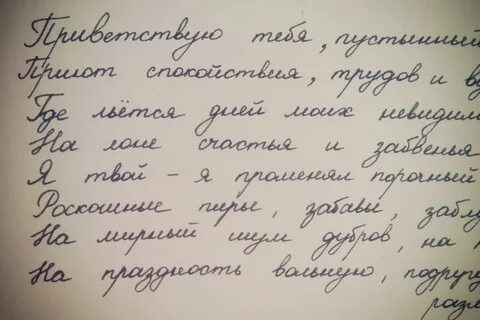 Приветствую тебя, пустынный
Приют спокойствия, трудов и в
Где льётся дней моих невидим
На лоне счастья и забвенья
Я твой – я променял порочный
Роскошные пиры, забавы, заблу
На мирный шум дубров, на
На праздность вольную, подругу
разм